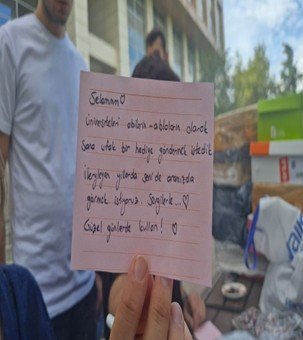 Selamm♡
Üniversiteli abilerin-ablaların olarak
sana ufak bir hediye göndermek istedik
İlerleyen yıllarda seni de aramızda
görmek istiyoruz. Sevgilerle...♡
Güzel günlerde kullan! ♡